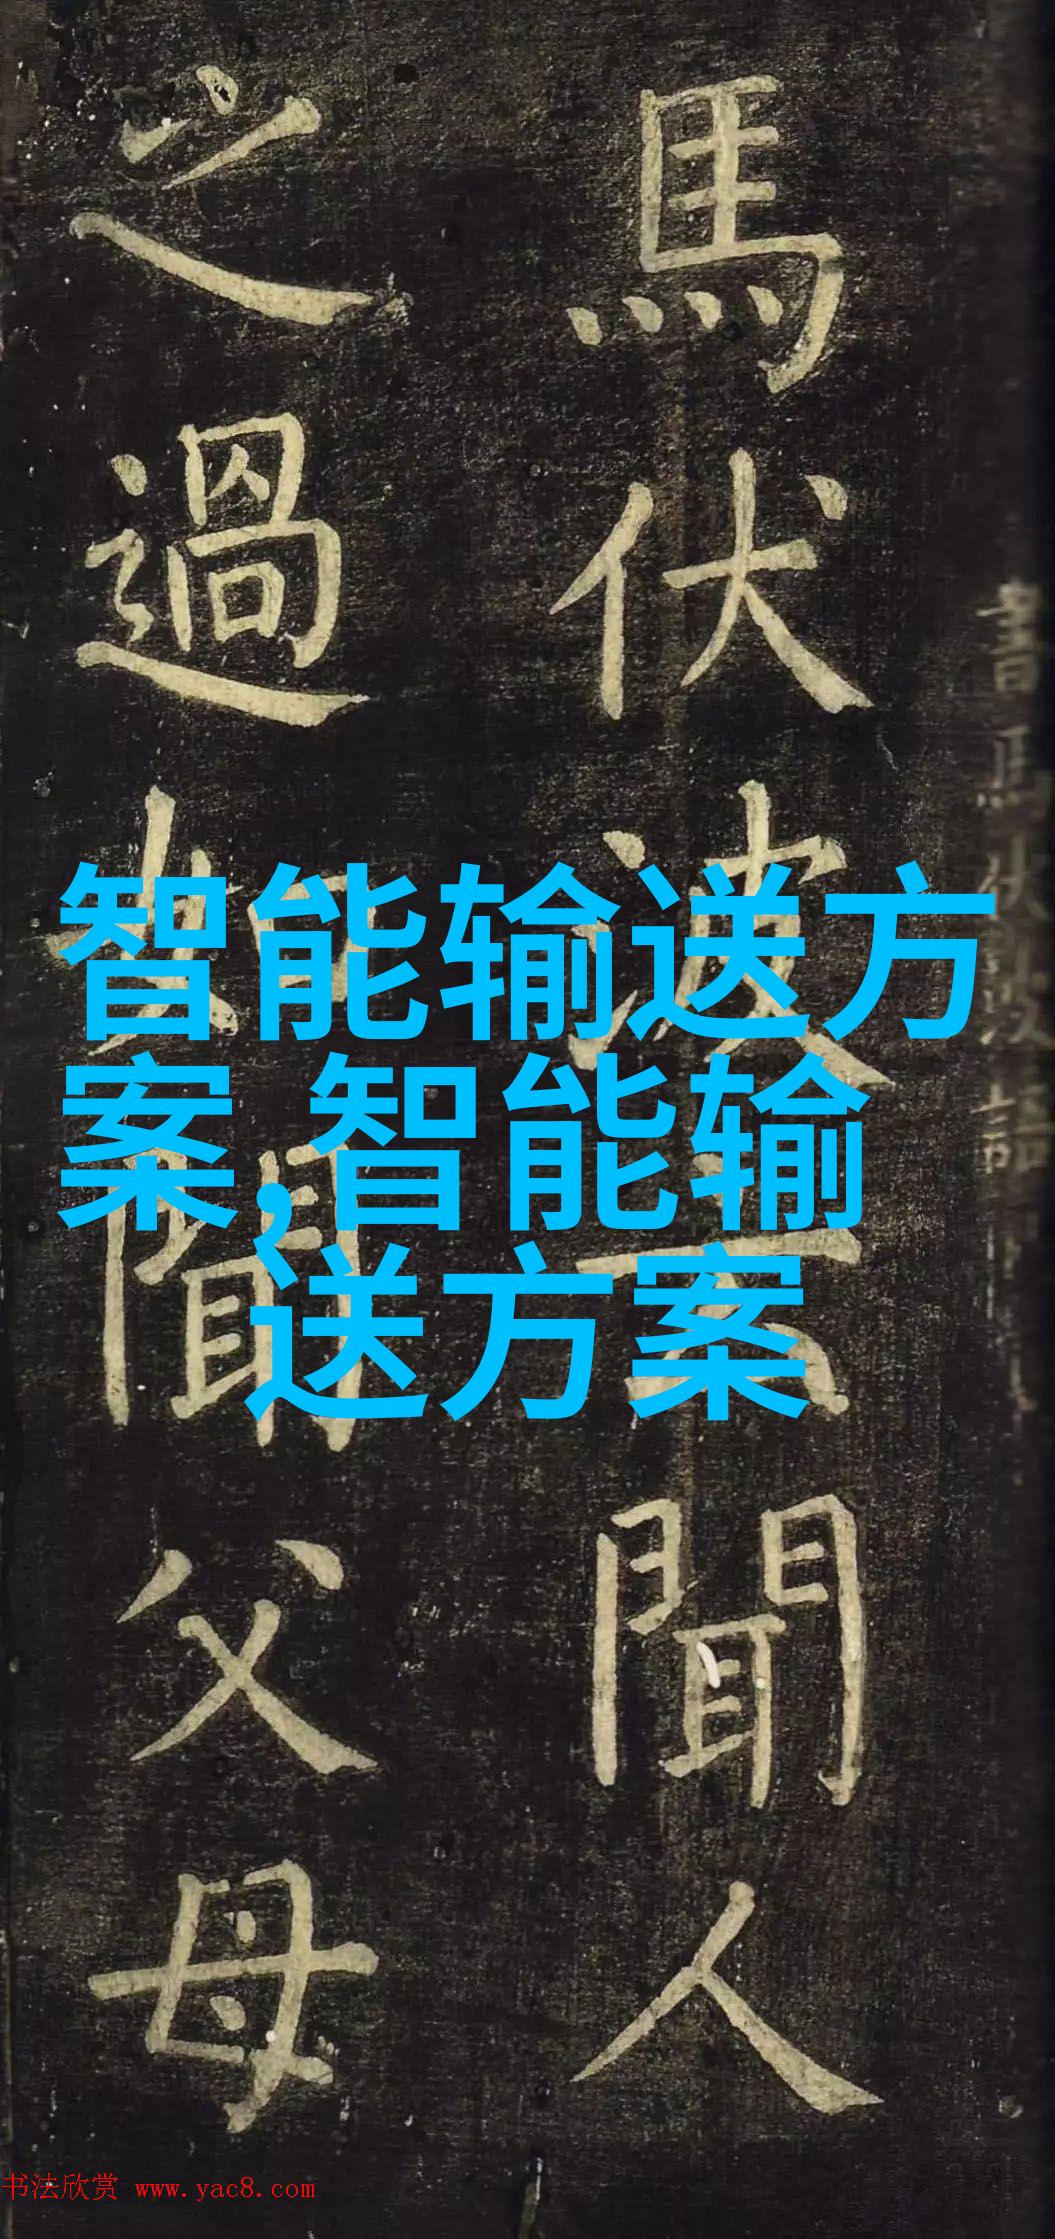 馬伏波云聞人
之過如聞父母
智能输送方
案,智能输
送方案
书法欣赏 www.yac8.com